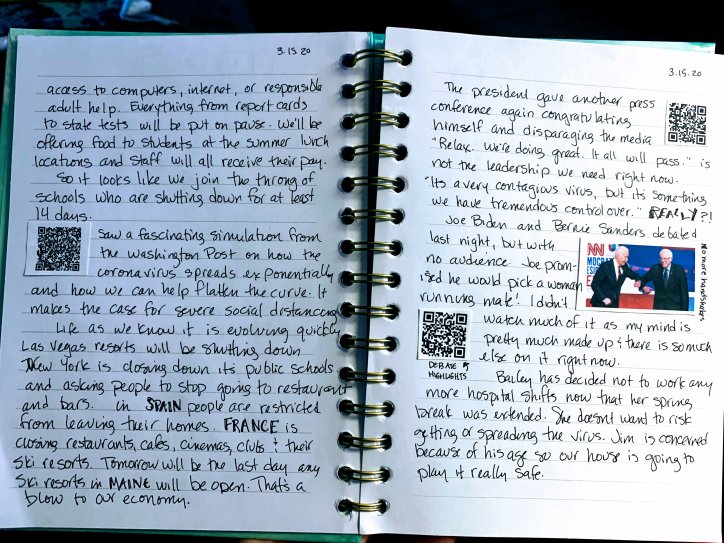 3.15.20
access to computers, internet, or responsible
adult help. Everything from report cards
to state tests will be put on pause. We'll be
offering food to students at the summer lunch
locations and staff will all receive their pay.
So it looks like we join the throng of
schools who are shutting down for at least
14 days.
Saw a fascinating simulation from
the Washington Post on how the
coronavirus spreads exponentially
and how we can help flatten the curve. It
makes the case for severe social distancing
Life as we know it is evolving quickly
Las Vegas resorts will be shutting down
New York is closing down its public schools
and asking people to stop going to restaurants
and bars. In SPAIN people are restricted
from leaving their homes. FRANCE is
closing restaurants, cafes, cinemas, clubs & their
ski resorts. Tomorrow will be the last day any
ski resorts in MAINE will be open. That's a
blow to our economy.
3.15.20
The president gave another press
conference again congratulating
himself and disparaging the media.
"Relax. We're doing great. It all will pass." is
not the leadership we need right now.
"Its a very contagious virus, but its something
we have tremendous control over." REALLY?!
Joe Biden and Bernie Sanders debated
last night, but with
no audience. Joe prom-
ised he would pick a woman
running mate! I didn't
No more handshakes
watch much of it as my mind is
pretty much made up & there is so much
else on it right now.
DEBATE
HIGHLIGHTS
Bailey has decided not to work any
more hospital shifts now that her spring
break was extended. She doesn't want to risk
getting or spreading the virus. Jim is concerned
because of his age so our house is going to
play it really safe.